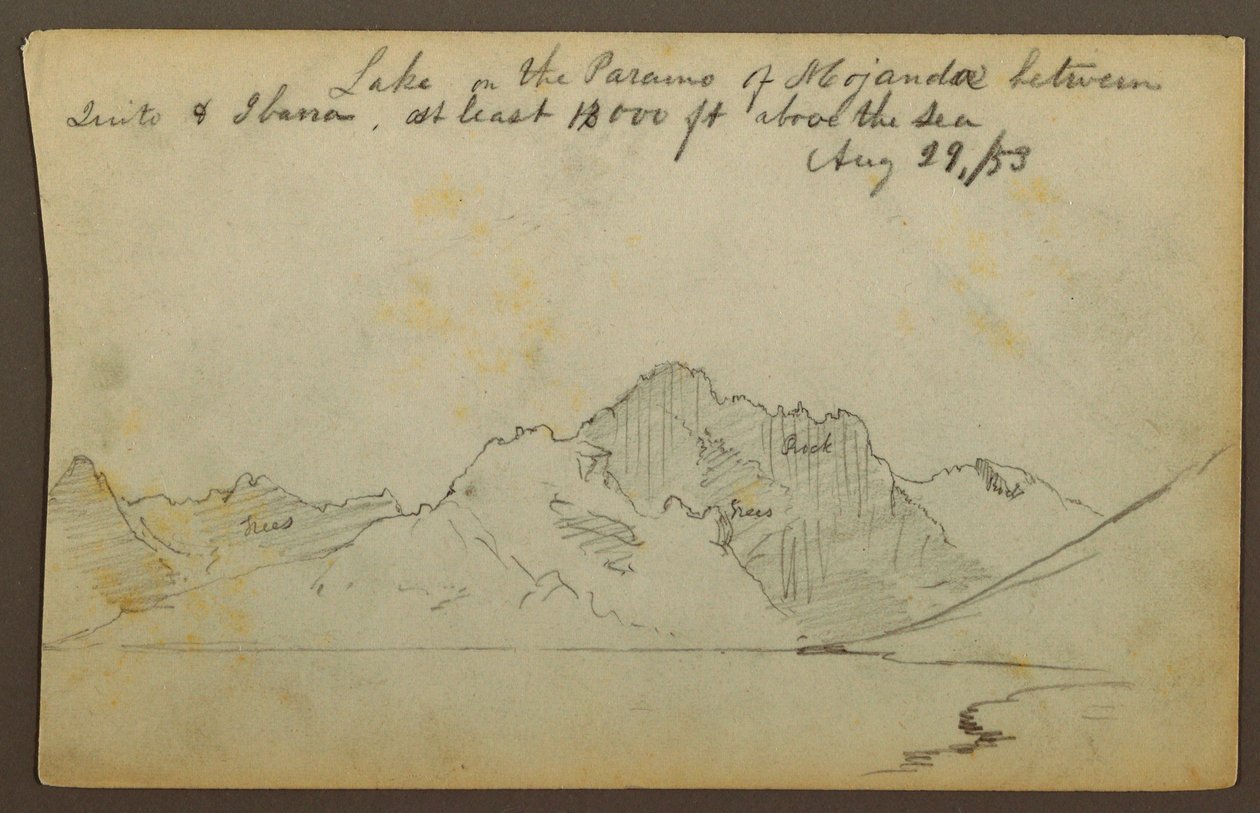 Lake on the Paramo of Mojanda between
Quito & Ibarra, at least 13000 ft above the sea
Aug 29, /53
Rock
Rock
Trees
Trees